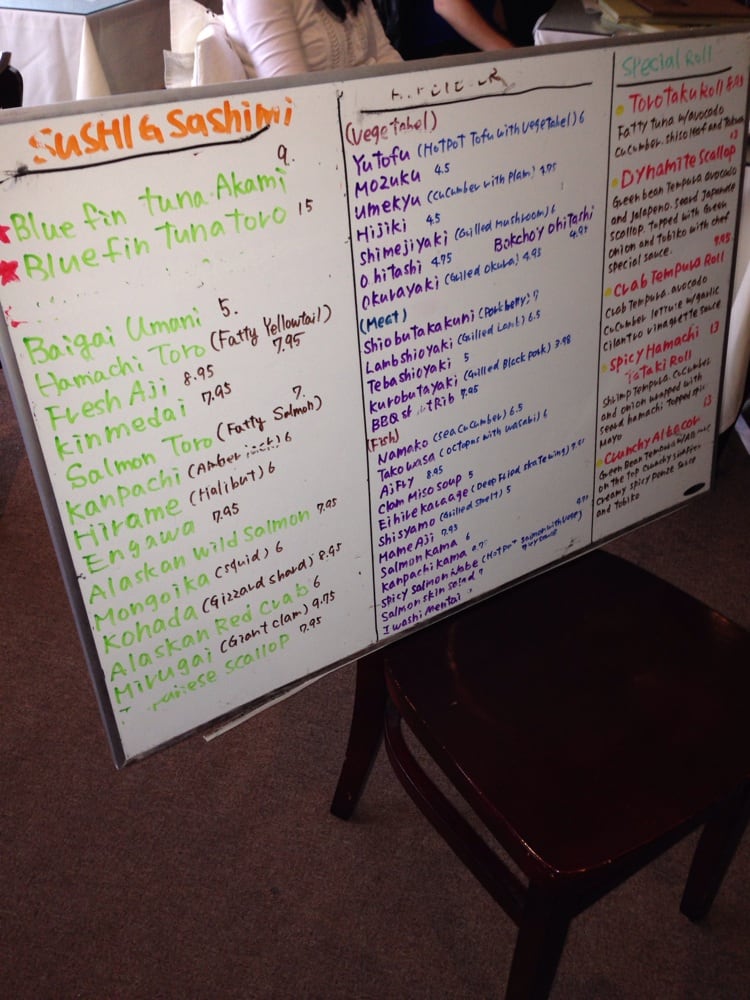 SUSHI & Sashimi
Blue fin tuna Akami 9.
Blue fin tuna toro 15
Baigai Umani 5.
Hamachi Toro (Fatty Yellowtail) 7.95
Fresh Aji 8.95
Kinmedai 7.95
Salmon Toro (Fatty Salmon) 7.
Kanpachi (Amber jack) 6
Hirame (Halibut) 6
Engawa 7.95
Alaskan wild Salmon 7.95
Mongoika (squid) 6
Kohada (Gizzard shard) 8.95
Alaskan Red Crab 6
Mirugai (Giant clam) 9.75
scallop 7.95
(Vegetabel)
YuTofu (HotPot Tofu with vegetabel) 6
Mozuku 4.5
Umekyu (Cucumber with Plam) 4.95
Hijiki 4.5
Shimejiyaki (Gilled Mushroom) 6
Ohitashi 4.75 Bokchoy Ohitashi 4.95
Okurayaki (Gilled Okura) 4.95
(Meat)
Shiobutakakuni (Porkbelly) 7
Lambshioyaki (Gilled Lamb) 6.5
Tebashioyaki 5
Kurobutayaki (Gilled Black Pork)
BBQ Rib 7.95
(Fish)
Namako (sea cucumber) 6.5
Takowasa (octopus with wasabi) 6
AjiFry 8.95
Clam Miso soup 5
Eihirekaraage (Deep Fried skate wing)
Shisyamo (Grilled Smelt) 5
Mame Aji 7.95
Salmon Kama 6
Kanpachi Kama
Spicy Salmon Nabe (Hotpot Salmon with Vege)
Salmon skin salad
Iwashi Mentai
Special Roll
Toro taku Roll
Fatty tuna w/avocado
cucumber, shiso leaf and
Dynamite Scallop 13
Green bean Tempura avocado
and jalapeno. Seard Japanese
scallop. Topped with Green
onion and Tobiko with chef
special sauce.
Crab Tempura Roll 9.95
Crab Tempura. avocado
cucumber lettuce w/garlic
cilantro vinagrette sauce
Spicy Hamachi 13
Tataki Roll
Shrimp Tempura. Cucumber
and onion wrapped with
seard hamachi Topped
Mayo
Crunchy Albecor 13
Green Bean Tempura
on the top crunchy
Creamy spicy Ponzu sauce
and Tobiko